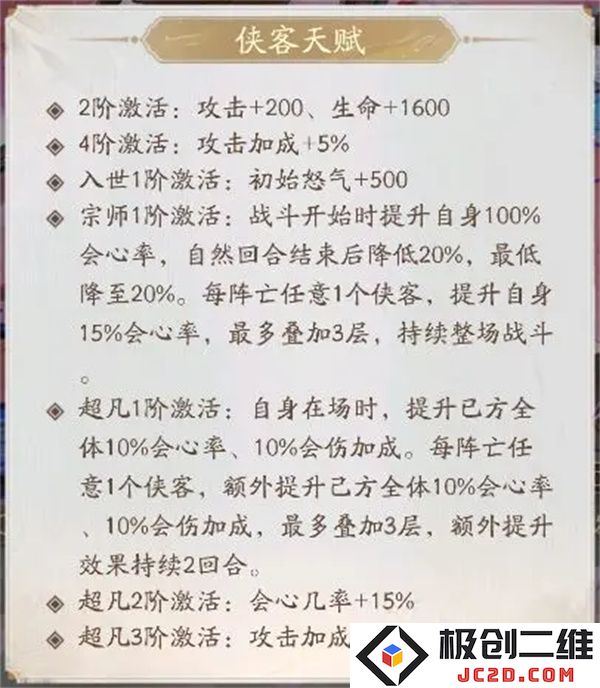 侠客天赋
2阶激活：攻击+200、生命+1600
4阶激活：攻击加成+5%
入世1阶激活：初始怒气+500
宗师1阶激活：战斗开始时提升自身100%
会心率，自然回合结束后降低20%，最低
降至20%。每阵亡任意1个侠客，提升自身
15%会心率，最多叠加3层，持续整场战斗
。
超凡1阶激活：自身在场时，提升己方全
体10%会心率、10%会伤加成。每阵亡任
意1个侠客，额外提升己方全体10%会心率
、10%会伤加成，最多叠加3层，额外提升
效果持续2回合。
超凡2阶激活：会心几率+15%
超凡3阶激活：攻击加成
极创二维
JC2D.COM